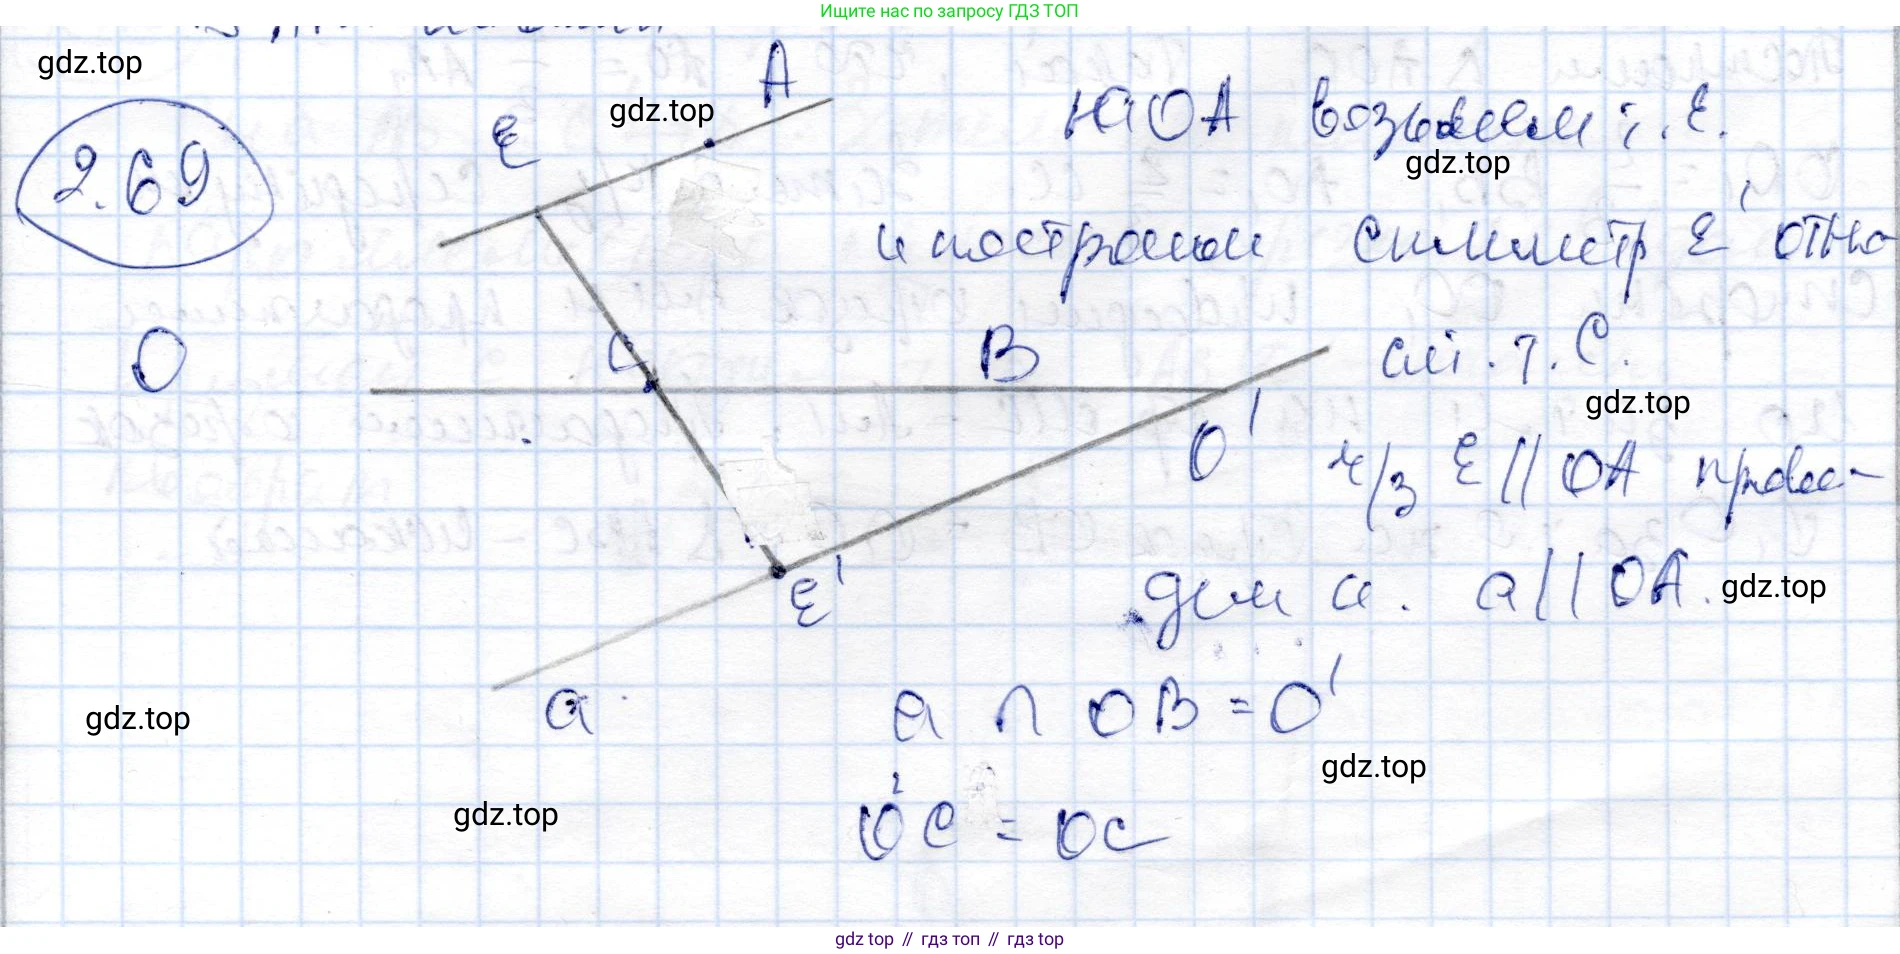 Ищите нас по запросу ГДЗ ТОП
gdz.top
2.69
E
gdz.top
A
На OA возьмем т. E.
gdz.top
и построим симметр E' отно-
O
C
B
O'
сит. т. C.
gdz.top
ч/з E // OA прове-
E'
дем a. a // OA.
gdz.top
gdz.top
a
a ∩ OB = O'
gdz.top
gdz.top
O'C = OC
gdz top // гдз топ // гдз top